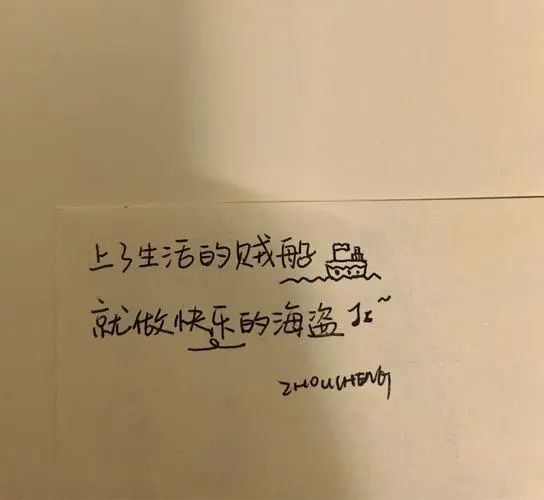 上了生活的贼船
就做快乐的海盗
ZHOUCHENG